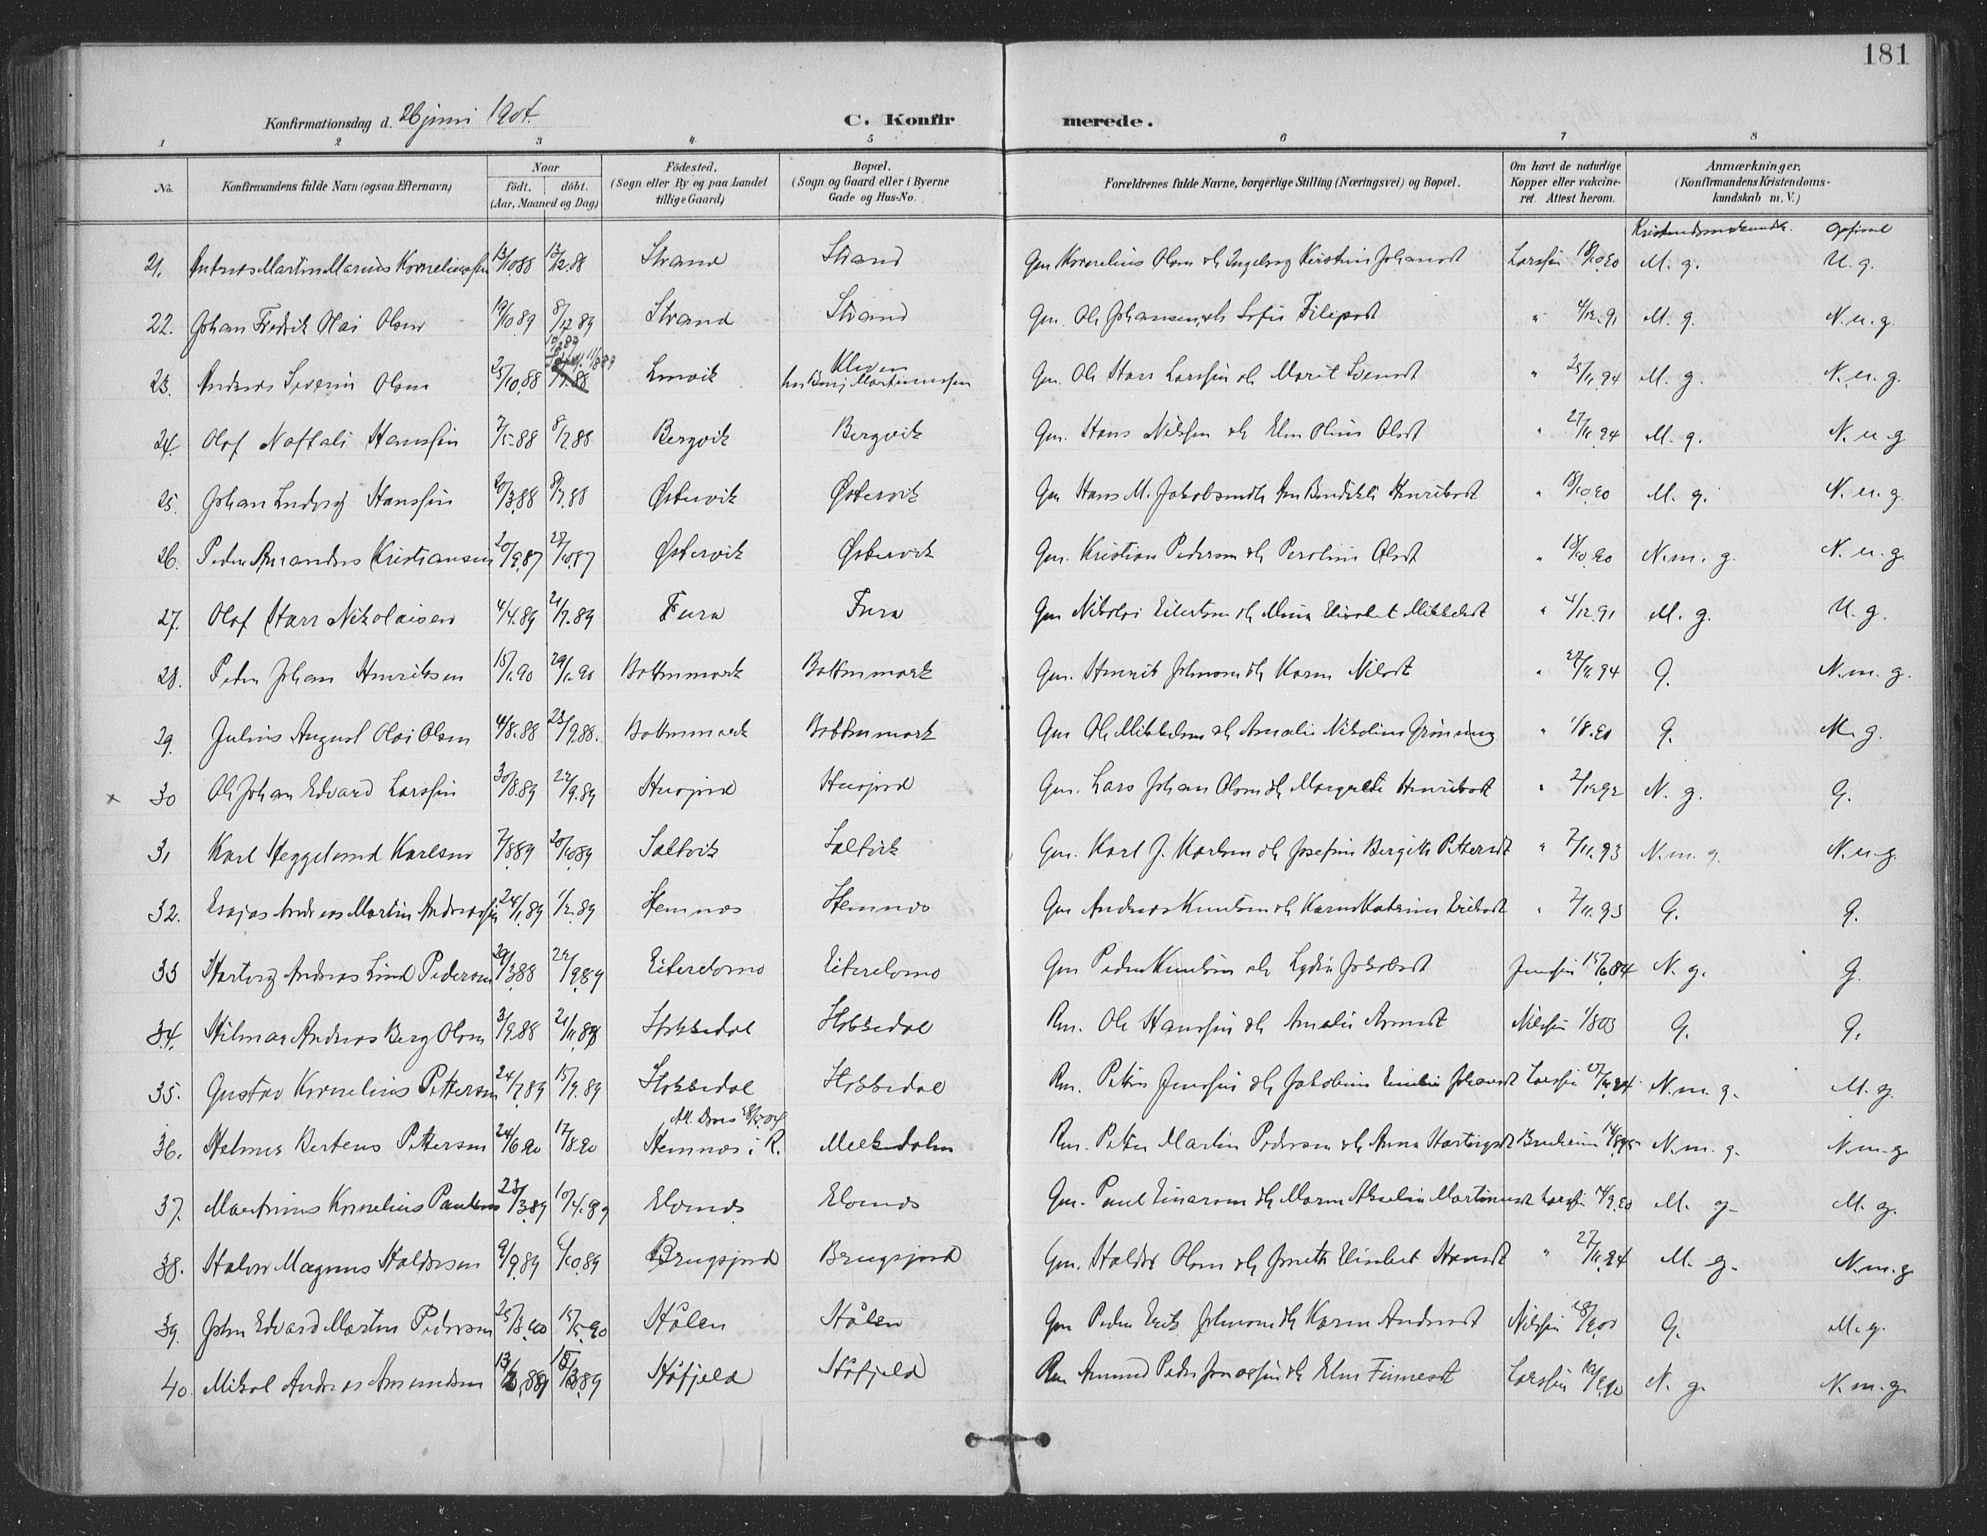 181
Konfirmationsdag d. 26 juni 1904.
C. Konfirmerede.
1 2 3 4 5 6 7 8
No. Konfirmandens fulde Navn (ogsaa Efternavn) Naar födt. döbt. (Aar, Maaned og Dag) Födested. (Sogn eller By og paa Landet tillige Gaard) Bopæl. (Sogn og Gaard eller i Byerne Gade og Hus-No. Forældrenes fulde Navne, borgerlige Stilling (Næringsvei) og Bopæl. Om havt de naturlige Kopper eller vakcineret. Attest herom. Anmærkninger, (Konfirmandens Kristendomskundskab m. V.)
21. Andreas Martin Marius Korneliussen 13/10 88 13/12.88 Strand Strand Gm Kornelius Olsen & h Ingeborg Kirstine Johansdt Larssen 18/10.90 M. g. U. g.
22. Johan Fredrik Olai Olsen 19/10 89 8/12 89 Strand Strand Gm. Ole Johansen & h Sofie Filipsdt " 4/12.91 M. g. N. u. g.
23. Andreas Severin Olsen 25/10.88 Lenvik Kleven hos Martinussen Gm. Ole Hans Larssen & h Marit Svensdt " 25/11.94 M. g. N. u. g.
24. Olaf Naftali Hanssen 7/5 88 8/7 88 Bergvik Bergvik Gm. Hans Nilssen & h Olsdt " 27/11.94 M. g. N. u. g
25. Johan Ludvig Hanssen 20/3.88 8/7.88 Østervik Østervik Gm Hans M. Jakobsen & h Henriksdt " 18/10.90 M. g. N. u. g
26. Peder Kristiansen 20/9.87 Østervik Østervik Gm. Kristian Pedersen & h Peroline Olsdt " 18/10.90 N. m. g. N. u. g
27. Olaf Hans Nikolaisen 4/4.89 21/7.89 Fura Fura Gm Nikolai Eilertsen & h Elisabet Mikkelsdt " 4/12.91 M. g. U. g.
28. Peder Johan Henriksen 15/1.90 29/1.90 Bottenmark Bottenmark Gm. Henrik Johnsen & h Karen Nilsdt " 27/11 94 G. N. m. g.
29. Julius August Olai Olsen 4/8.88 23/9.88. Bottenmark Bottenmark Gm Ole Mikkelsen & h Amalie Nikoline Grønning " 1/8.90 G. M. g.
x 30 Ole Johan Edvard Larssen 30/8.89 22/9.89 Husjord Husjord Gm. Lars Johan Olsen & h Margrete Henriksdt " 2/12 92 N. g. G.
31 Karl Heggelund Karlsen 7/8 89 20/10 89 Saltvik Saltvik Gm. Karl J. Karlsen & h Josefine Bergitte Pettersdt " 7/11.93 N. m. g N. u. g
32. Esajas Andreas Martin Andreassen 24/1.89 1/2.89 Hemnes Hemnes Gm Andreas Knutsen & h Karen Katrine Eriksdt " 7/11.93 G. G.
33 Hartvig Andreas Lind Pedersen 29/3.88 22/9.89 Eiterelvmo Eiterelvmo Gm Peder Knutsen & h Lydia Jakobsdt Jenssen 15/6.84 N. g. G.
34. Hilmar Andreas Berg Olsen 3/9.88 21/11.88 Stokkedal Stokkedal Rm. Ole Hanssen & h Amalie Arnesdt Nilssen 1/8 03 G. G.
35. Gustav Kornelius Pettersen 24/7.89 15/9.89 Stokkedal Stokkedal Rm. Petter Jenssen & h Jakobine Emelie Johansdt Larssen 27/11.94 N. m. g. M. g.
36. Helmer Bertens Pettersen 24/6 90 17/8.90 Hemnes i R. Melkedalen Rm. Petter Martin Pedersen & h Anna Hartvigsdt N. m. g. N. m. g
37. Martinus Kornelius Paulsen 23/3.89 10/4.89 Elvenes Elvenes Gm. Paul Einarsen & h Maren Akseline Martinusdt Larssen M. g. M. g.
38. Halvor Magnus Haldorsen 9/9.89 6/10.89 Brugsjord Brugsjord Gm. Haldor Olsen & h Elisabet Hansdt " 27/11.94 M. g. N. m. g
39. John Edvard Martin Pedersen 25/3.90 15/5.90 Hålen Hålen Gm Peder Erik Johnsen & h Karen Andersdt Nilssen G. M. g.
40. Mikal Andreas Amundsen 89 Håfjeld Håfjeld Rm Amund Peder & h Elen Finnesdt Larssen N. g. N. m. g.